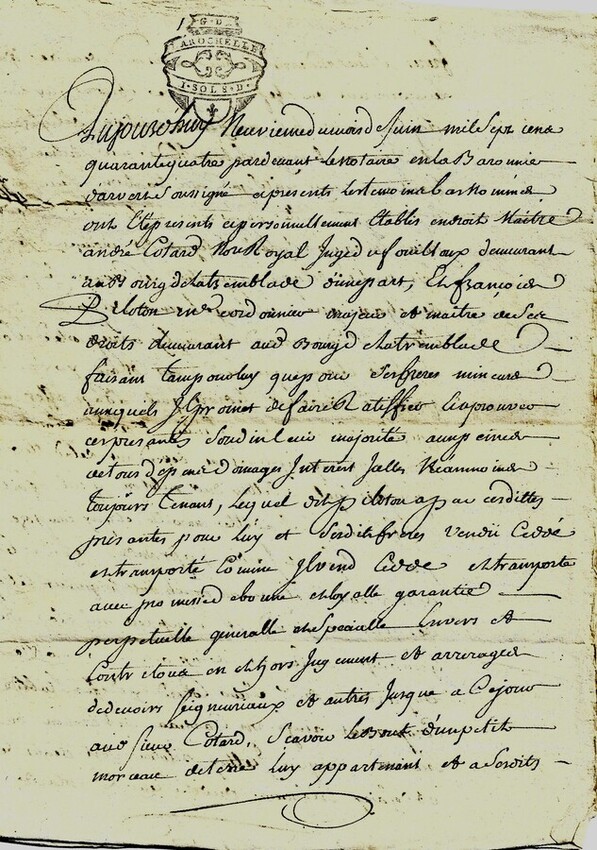 G · D
LAROCHELLE
I · SOLS · D ·
Aujourdhuy Neuvieme du mois de Juin mil Sept cens
quarante quatre pardevant Le notaire en la Baronnie
darvert Soussigné et presents les temoins bas Nommés
ont Eté presents et personnellement Etablis en droit Maitre
andré Cotard Nore Royal Juge de fouilloux demeurant
au Bourg de la tremblade d'une part, Et françois
Piloton me cordonnier majeur et maitre de Ses
droits demeurant aud Bourg de la tremblade
faisant tant pour luy que pour Ses freres mineurs
auxquels Il promet de faire Ratiffier Et aprouver
ces presantes Soudin leur majorité aux peines
de tous depans domages Interest Jcelles Neanmoins
toujours tenant, Lequel dit piloton a par cesdittes
presantes pour Luy et Sesdits freres vendu Ceddé
et transporté Comme Il vend Cedde et transporte
avec promesse de bonne et loyalle garantie
perpetuelle generalle et Specialle Envers et
Contre tous en et hors Jugement et arrerages
de devoirs Seigneuriaux et autres Jusque a Ce jour
aud Sieur Cotard, Scavoir Le Bout d'un petit
morceau de terre Luy appartenant et a Sesdits